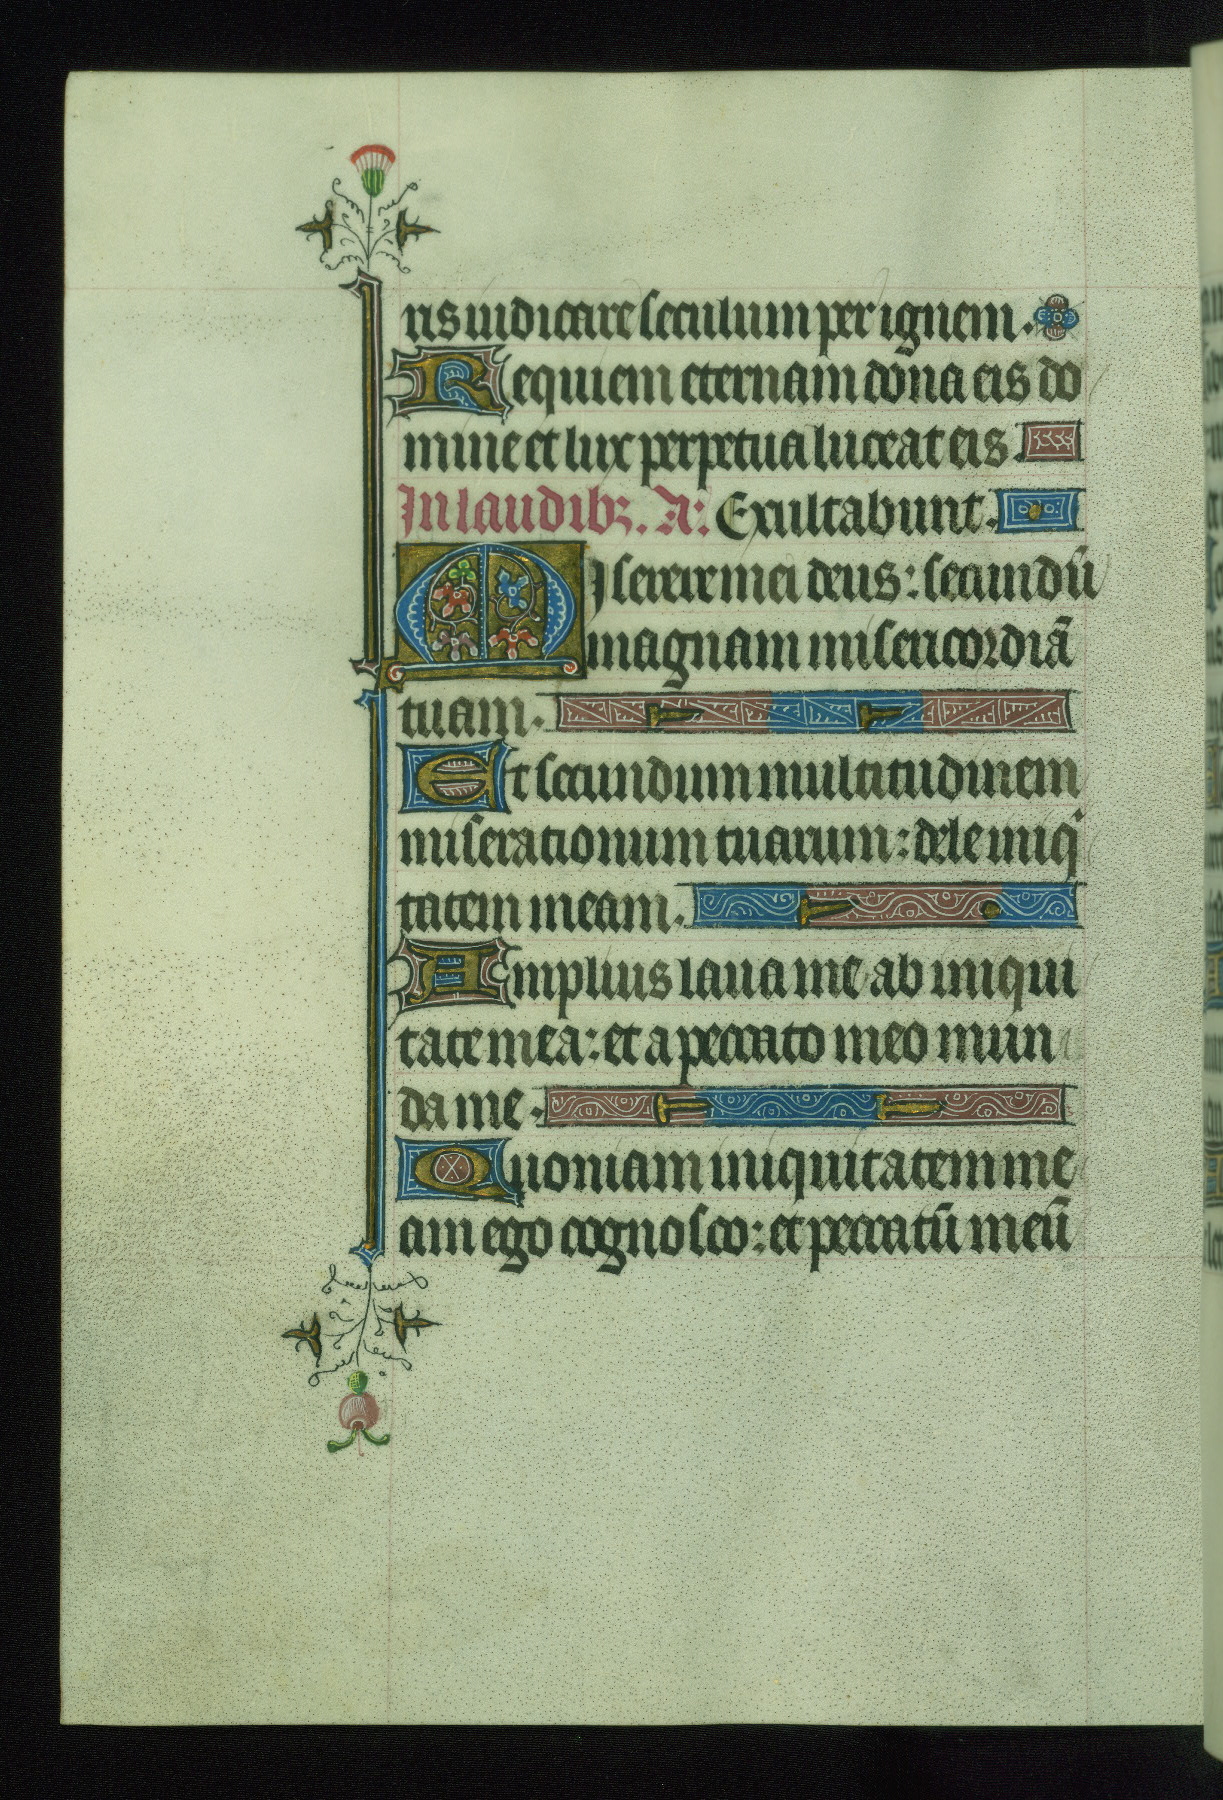 ris iudicare seculum per ignem.
Requiem eternam dona eis do
mine et lux perpetua luceat eis
In laudibꝫ. A: Exultabunt.
Miserere mei deus: secundū
magnam misericordiā
tuam.
Et secundum multitudinem
miserationum tuarum: dele iniqͥ
tatem meam.
Amplius laua me ab iniqui
tate mea: et a peccato meo mun
da me.
Quoniam iniquitatem me
am ego cognosco: et peccatū meū